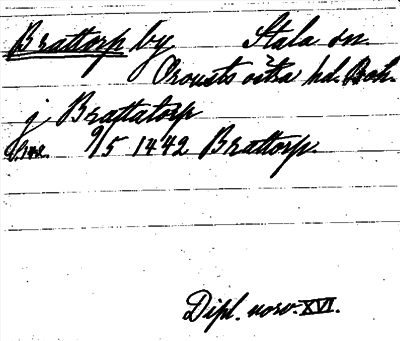 Brattorp by Stala sn.
Orousts östra hd. Boh.
j Brattatorp
9/5 1442 Brattorp.
Dipl. norv. XVI.